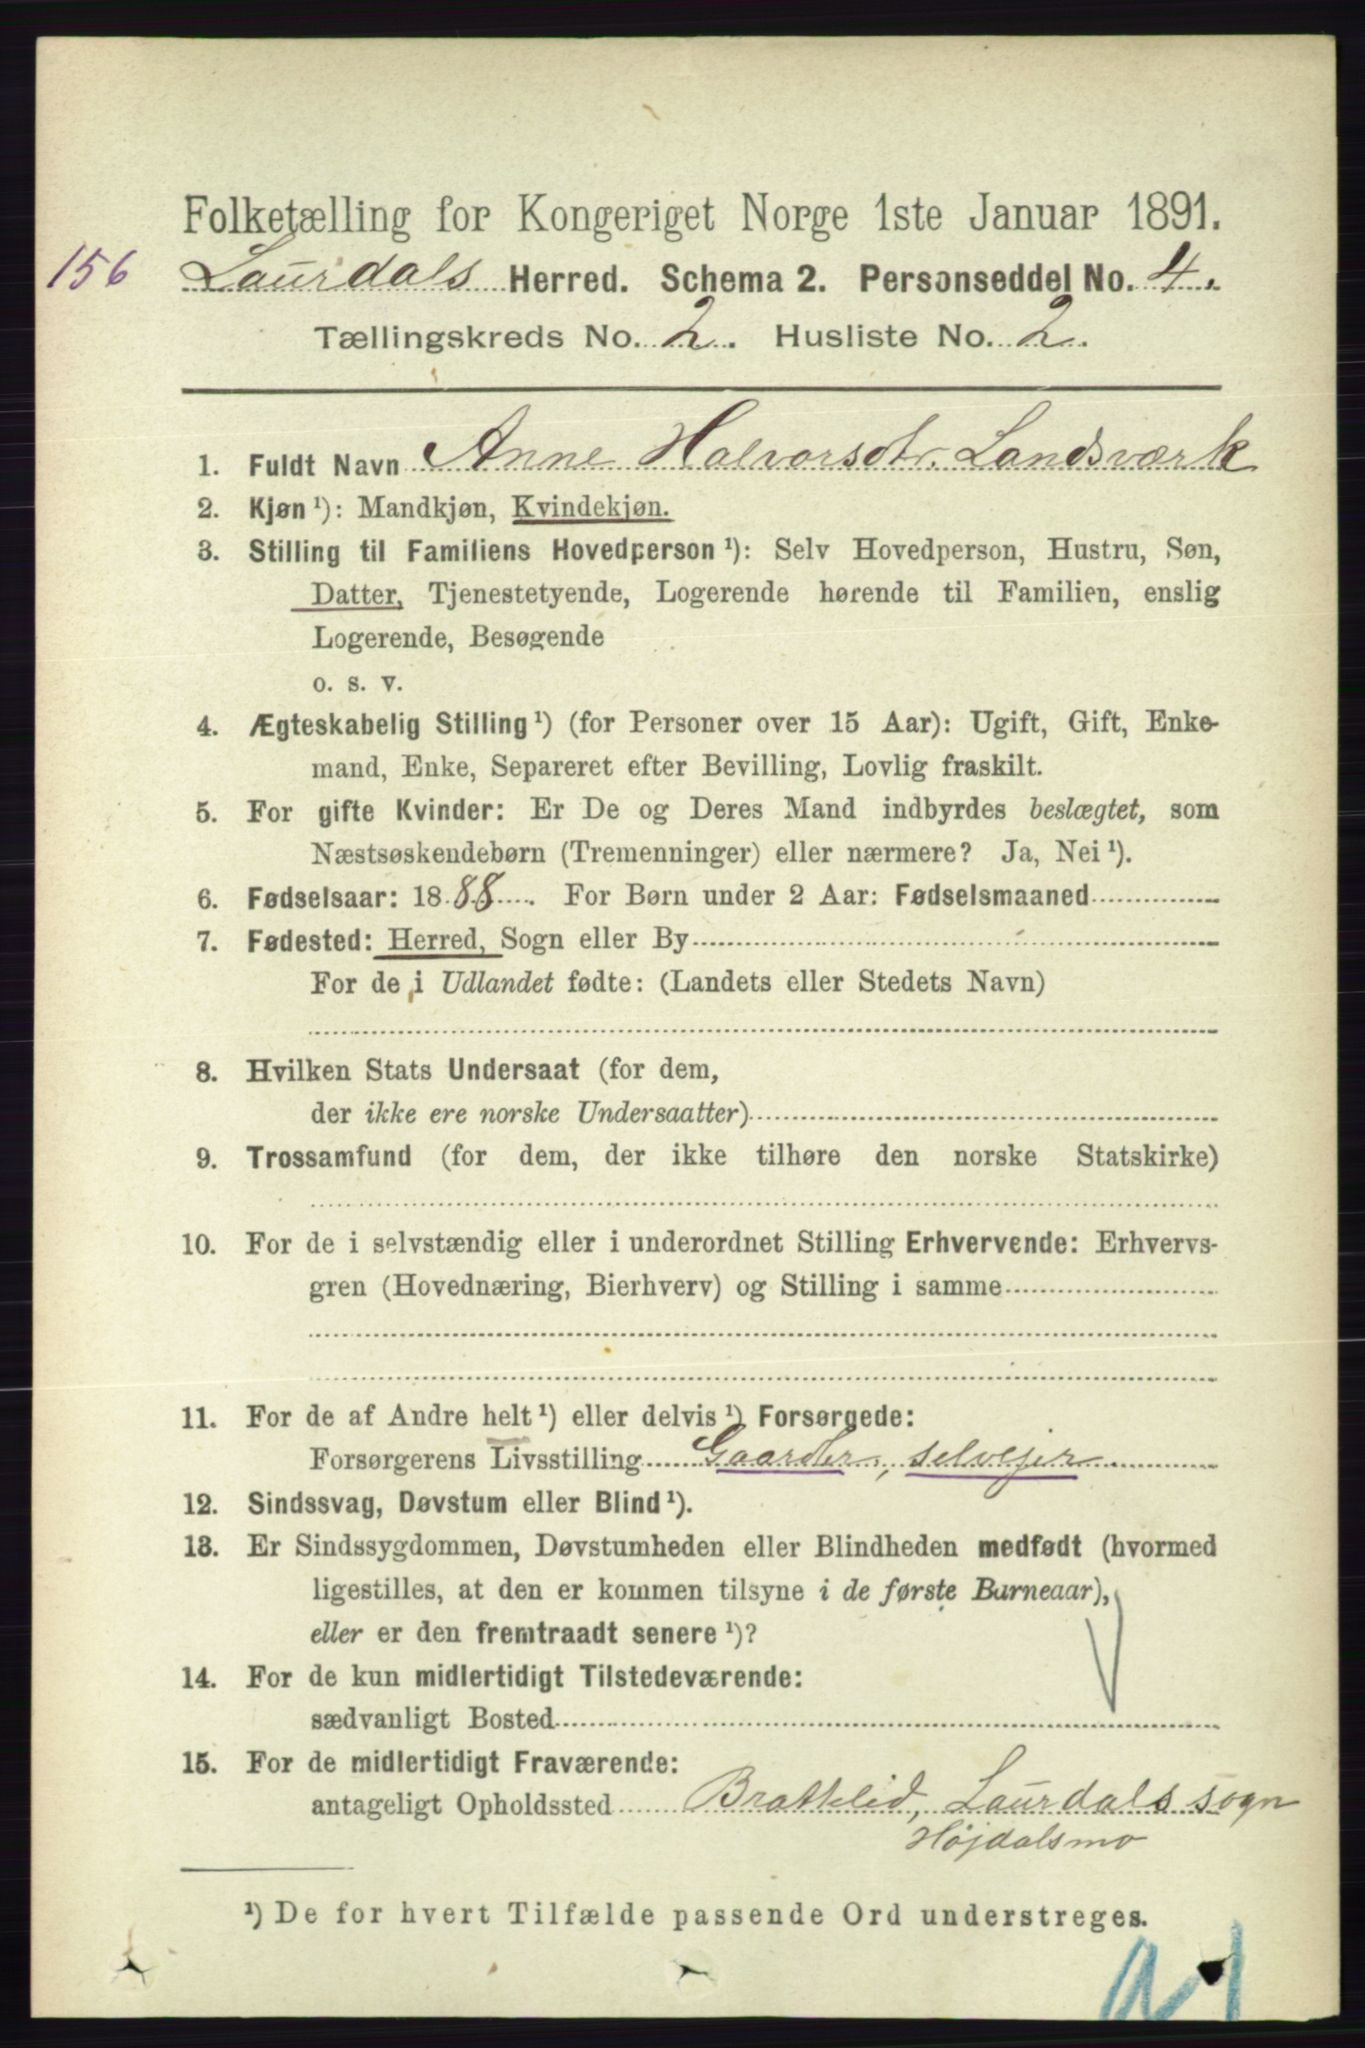 Folketælling for Kongeriget Norge 1ste Januar 1891.
156 Laurdals Herred. Schema 2. Personseddel No. 4.
Tællingskreds No. 2. Husliste No. 2.
1. Fuldt Navn Anne Halvorsdtr. Landsværk
2. Kjøn ¹): Mandkjøn, Kvindekjøn.
3. Stilling til Familiens Hovedperson ¹): Selv Hovedperson, Hustru, Søn,
Datter, Tjenestetyende, Logerende hørende til Familien, enslig
Logerende, Besøgende
o. s. v.
4. Ægteskabelig Stilling ¹) (for Personer over 15 Aar): Ugift, Gift, Enke-
mand, Enke, Separeret efter Bevilling, Lovlig fraskilt.
5. For gifte Kvinder: Er De og Deres Mand indbyrdes beslægtet, som
Næstsøskendebørn (Tremenninger) eller nærmere? Ja, Nei ¹).
6. Fødselsaar: 1888. For Børn under 2 Aar: Fødselsmaaned
7. Fødested: Herred, Sogn eller By
For de i Udlandet fødte: (Landets eller Stedets Navn)
8. Hvilken Stats Undersaat (for dem,
der ikke ere norske Undersaatter)
9. Trossamfund (for dem, der ikke tilhøre den norske Statskirke)
10. For de i selvstændig eller i underordnet Stilling Erhvervende: Erhvervs-
gren (Hovednæring, Bierhverv) og Stilling i samme
11. For de af Andre helt ¹) eller delvis ¹) Forsørgede:
Forsørgerens Livsstilling Gaardbr., selvejer
12. Sindssvag, Døvstum eller Blind ¹).
13. Er Sindssygdommen, Døvstumheden eller Blindheden medfødt (hvormed
ligestilles, at den er kommen tilsyne i de første Barneaar),
eller er den fremtraadt senere ¹)?
14. For de kun midlertidigt Tilstedeværende:
sædvanligt Bosted
15. For de midlertidigt Fraværende:
antageligt Opholdssted Brattelid, Laurdals sogn
Højdalsmo
¹) De for hvert Tilfælde passende Ord understreges.